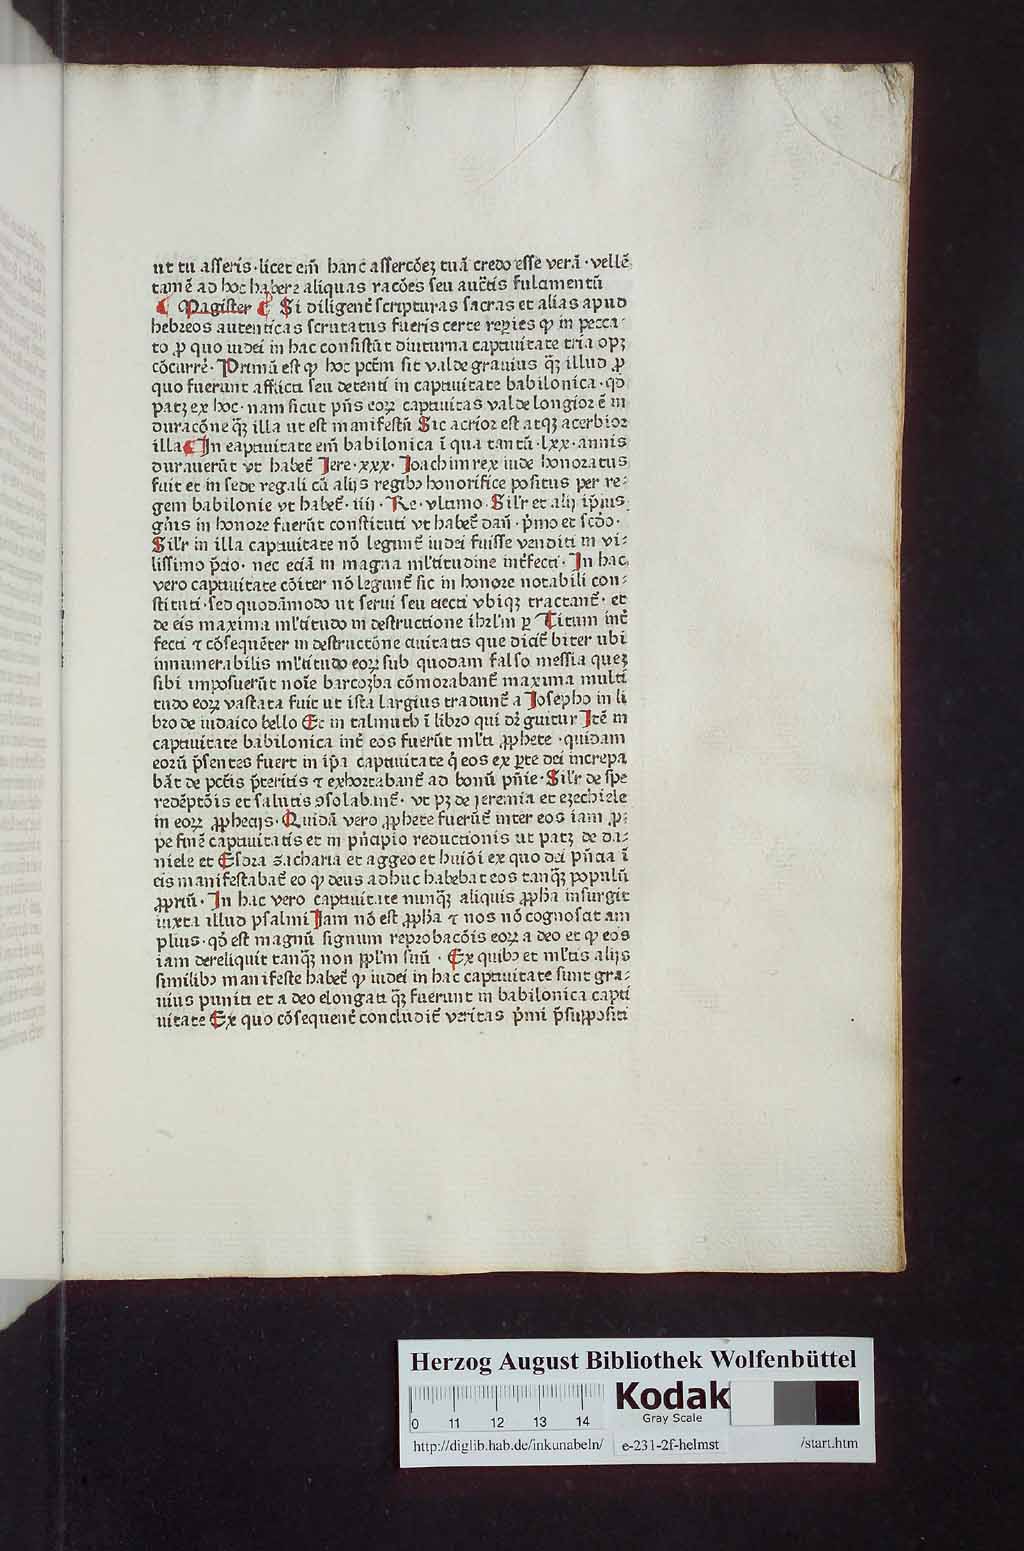 ut tu asseris·licet em̄ hanc assercōeꝫ tuā credo esse verā·vellē
tamē ad hoc habere aliquas racōes seu auct̄is fulamentū
¶ Magister ¶ Si diligent̄ scripturas sacras et alias apud
hebreos autenticas scrutatus fueris certe reꝑies ꝙ in pecca-
to ꝓ quo iudei in hac consistūt diuturna captiuitate tria opꝫ
cōcurrē·Primū est ꝙ hoc pctm̄ sit valde grauius qꝫ̄ illud ꝓ
quo fuerunt afflicti seu detenti in captiuitate babilonica·qd̄
patꝫ ex hoc·nam sicut pn̄s eoꝝ captiuitas valde longior ē in
duracōne qꝫ̄ illa ut est manifestū Sic acrior est atqꝫ acerbior
illa ¶ In captiuitate em̄ babilonica ī qua tantū·lxx·annis
durauerūt vt habet̄ Jere·xxx·Joachim rex iude honoratus
fuit et in sede regali cū alijs regibꝰ honorifice positus per re-
gem babilonie vt habet̄·iiij·Re·vltimo·Sil'r et alij ip̄ius
gn̄is in honore fuerūt constituti vt habet̄ dan̄·p̄mo et scd̄o·
Sil'r in illa captiuitate nō legunt̄ iudei fuisse venditi in vi-
lissimo p̄cio·nec eciā in magna ml'titudine int̄fecti·In hac
vero captiuitate cōiter nō legunt̄ sic in honore notabili con-
stituti·sed quodāmodo ut serui seu eiecti vbiqꝫ tractant̄·et
de eis maxima ml'titudo in destructione ihrl'm ꝑ Titum int̄
fecti ⁊ cōsequēter in destructōne ciuitatis que dicit̄ biter ubi
innumerabilis ml'titudo eoꝝ sub quodam falso messia queꝫ
sibi imposuerūt noīe barcozba cōmorabant̄ maxima multi
tudo eoꝝ vastata fuit ut ista largius tradunt̄ a Josepho in li
bro de iudaico bello Et in talmuth ī libro qui dr̄ guitur Itē in
captiuitate babilonica int̄ eos fuerūt ml'ti ꝓphete·quidam
eorū p̄sentes fuert̄ in ip̄a captiuitate q̄ eos ex ꝑte dei increpa
bāt de pctis p̄teritis ⁊ exhortabant̄ ad bonū pn̄ie·Sil'r de spe
redēptōis et salutis ꝯsolabant̄·vt pꝫ de jeremia et ezechiele
in eoꝝ ꝓphecijs·Quidā vero ꝓphete fuerūt inter eos iam ꝓ-
pe finē captiuitatis et in pn̄cipio reductionis ut patꝫ de da-
niele et Esdra zacharia et aggeo et hui9ōi ex quo dei pn̄cia ī
eis manifestabat̄ eo ꝙ deus adhuc habebat eos tanqꝫ̄ populū
ꝓpriū·In hac vero captiuitate nunqꝫ̄ aliquis ꝓpha insurgit
iuxta illud psalmi Jam nō est ꝓpha ⁊ nos nō cognoscat am
plius·qd̄ est magnū signum reprobacōis eoꝝ a deo et ꝙ eos
iam dereliquit tanqꝫ̄ non ppl'm suū·Ex quibꝰ et ml'tis alijs
similibꝰ manifeste habet̄ ꝙ iudei in hac captiuitate sunt gra-
uius puniti et a deo elongati qꝫ̄ fuerunt in babilonica capti
uitate Ex quo cōsequent̄ concludit̄ veritas p̄mi p̄suppositi
Herzog August Bibliothek Wolfenbüttel
Kodak
Gray Scale
0 11 12 13 14
http://diglib.hab.de/inkunabeln/ e-231-2f-helmst /start.htm